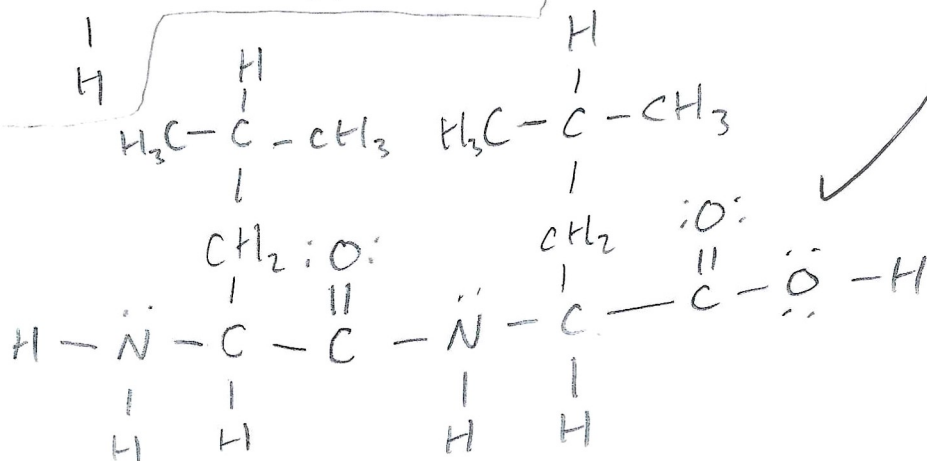 H
H
H
H₃C – C – CH₃
H₃C – C – CH₃
CH₂ :O:
CH₂
:O:
H – N̈ – C – C – N̈ – C – C – Ö – H
H H H H